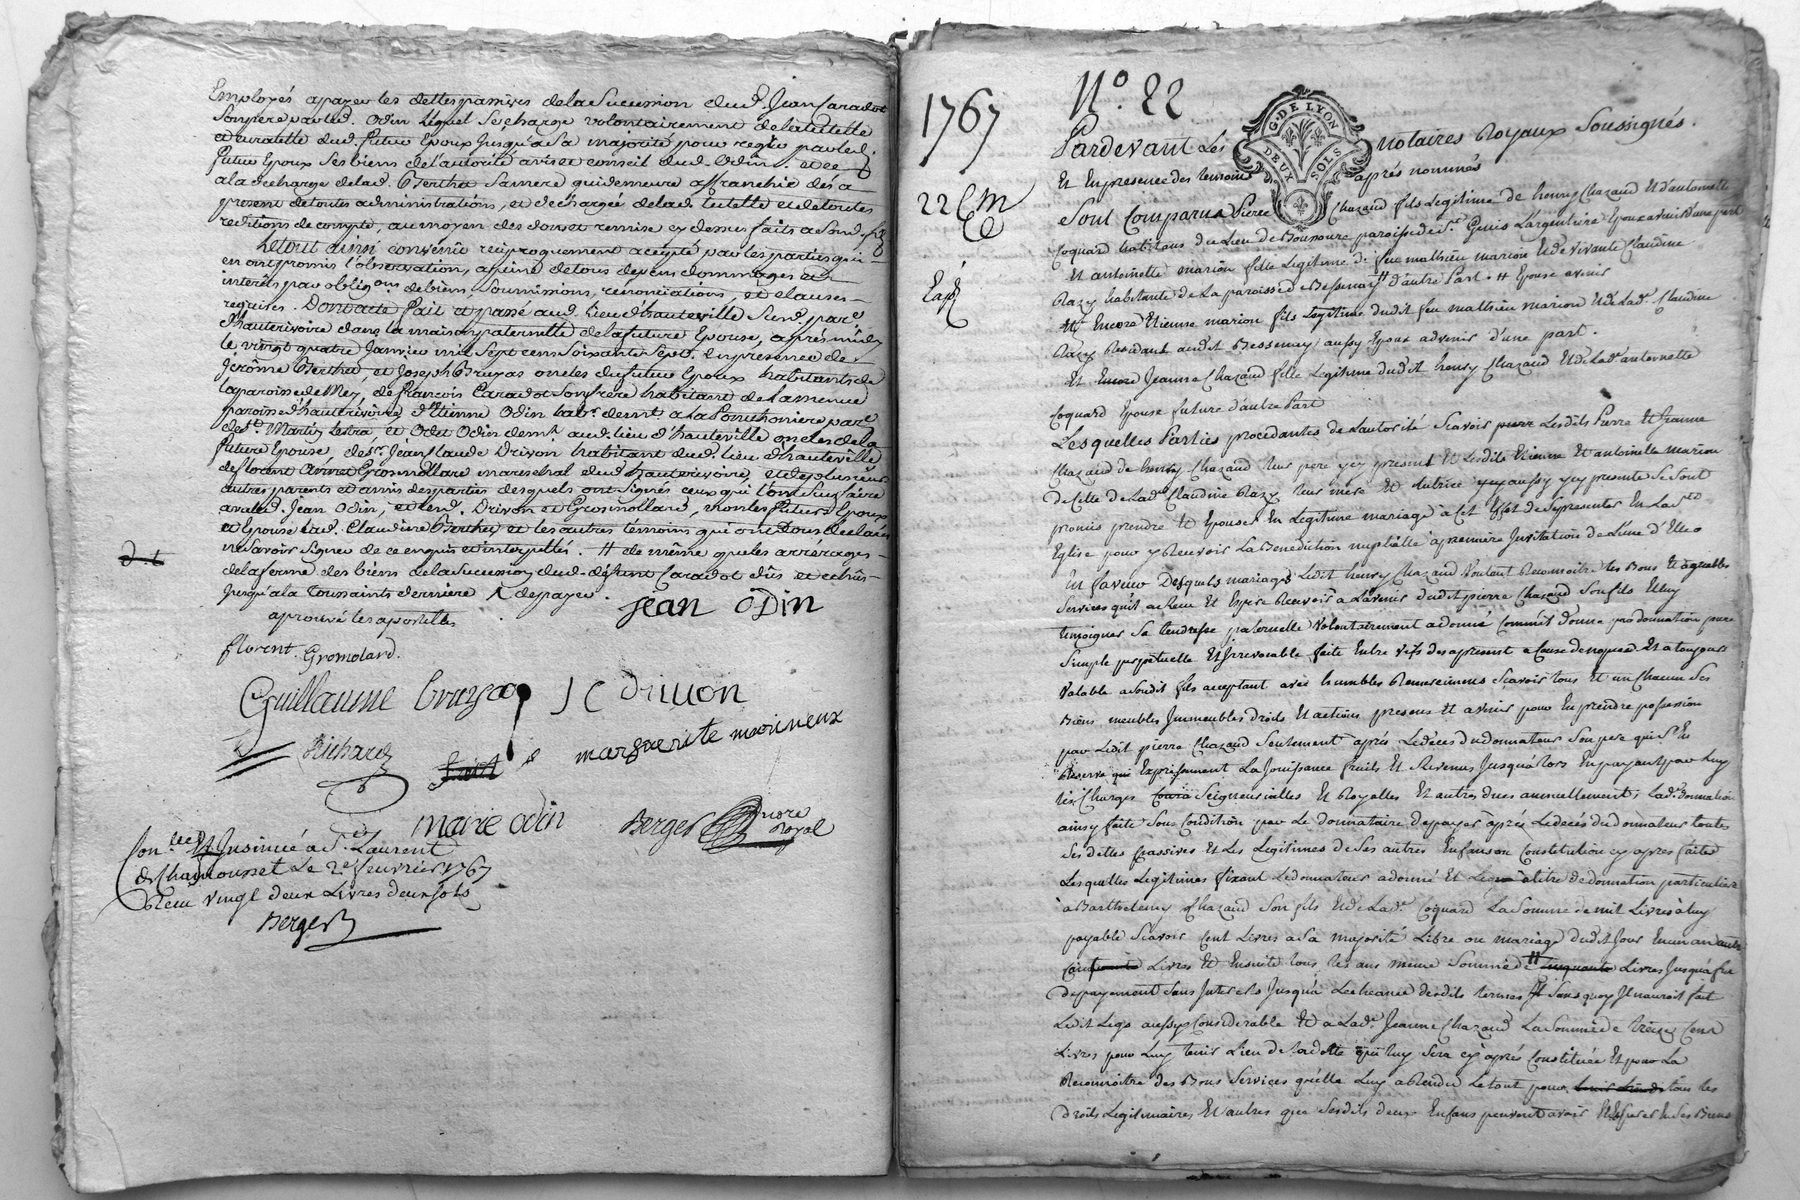 Employés a payer les dettes passives de la Succession dud. Jean Caradot
Son pere par led. Odin lequel Se charge volontairement de la tutelle
et curatelle dud. futur Epoux Jusqu'a Sa majorité pour regir par led.
futur Epoux Ses biens de l'autorité avis et conseil dud. Odin. et ce
a la decharge de lad. Berthet Sa mere qui demeure affranchie dés a
present de toutes administrations, et dechargée de lad. tutelle et de toutes
redditions de compte, au moyen des
Le tout ainsi convenu reciproquement accepté par les parties qui
en ont promis l'observation, a peine de tous depens dommages et
interets par obligons de biens, Soumissions, renonciations, et clauses
requises. Dont acte fait et passé aud. lieu d'hauteville Susd. parse
d'hauterivoire dans la maison paternelle de la future Epouse, aprés midy
le vingt quatre Janvier mil Sept cens Soixante Sept. En presence de
Jerôme Berthet, et Joseph Bruyas oncles du futur Epoux habitants de
la paroisse de Mey, de françois Caradot Son frere habitant de la meme
paroisse d'hauterivoire, d'Etienne Odin habt. demt. a la Ponchoniere parse
de St. Martin Lestra et Odet Odin demt. aud. lieu d'hauteville oncles de la
future Epouse, de sr. Jean Claude Drivon habitant dud. lieu d'hauteville
de florent Gromollard marechal dud. hauterivoire, et de plusieurs
autres parents et amis des parties desquels ont Signés ceux qui l'ont Sçu faire
avec led. Jean Odin, et lesd. Drivon et Gromollard, non les futurs Epoux
et Epouse lad. Claudine Berthet et les autres temoins qui ont tous declarés
ne Savoir Signer de ce enquis et interpellés. # de même que les arrerages
de la ferme des biens de la Succession dud. défunt Caradot dûs et echûs
Jusqu'a la toussaints derniere depayer.
aprouvé les apostilles
Jean Odin
florent Gromolard.
Guillaume bruyas J C drivon
Richard
marguerite morineux
marie odin
Berger nore
Royal
Conlé et Insinué a St. Laurent
de Chamousset Le 2e. fevrier 1767
Recu vingt deux Livres deux sols
Berger
1767
No. 22
22 C M
G. DE LYON
DEUX SOLS
Pardevant Les notaires Royaux Soussignés
Et En presence des temoins aprés nommés
Sont Comparus Pierre Chazaud fils Legitime de henry Chazaud Et d'antoinette
Coquard habitans du Lieu de Boussoure paroisse de St. Genis L'argentiere Epoux avenir d'une part
Et antoinette marion fille Legitime de feu mathieu marion Et de vivante Claudine
Razy habitante de La paroisse de Bessenay d'autre Part. # Epouse avenir
Et Encore Etienne marion fils Legitime dudit feu mathieu marion Et de Lade. Claudine
Razy Residant audit Bessenay aussy Epoux advenir d'une part.
Et Encore Jeanne Chazaud fille Legitime dudit henry Chazaud Et de Lade. antoinette
Coquard Epouse future d'autre Part
Lesquelles Parties procedantes de Lautorité Scavoir Lesdits Pierre Et Jeanne
Chazaud de henry Chazaud leur pere icy present Et Lesdits Etienne Et antoinette marion
de Celle de Lade. Claudine Razy leur mere Et tutrice icy aussy presente Se Sont
promis prendre Et Epouser En Legitime mariage a Cet Effet de Se presenter En Late.
Eglise pour y Recevoir La Benediction nuptialle a premiere Invitation de L'une d'Elles
En faveur Desquels mariages Ledit henry Chazaud Voulant Reconnoitre les Bons Et agreables
Services qu'il a Recu Et Espere Recevoir a L'avenir dudit pierre Chazaud Son fils Et luy
temoigner Sa tendresse paternelle Volontairement a donné Comme il donne par donnation pure
Simple perpetuelle Et Irrevocable faite Entre vifs des apresent a Cause de noces Et a toujours
Valable a Sondit fils acceptant avec humbles Remerciemens Scavoir tous Et un Chacun Ses
Biens meubles Immeubles droits Et actions presens Et avenir pour En prendre possession
par Ledit pierre Chazaud Seulement aprés Le deces du donnateur Son pere qui S'En
Reserve Expressement La Jouissance fruits Et Revenus Jusqu'alors En payant par luy
les Charges Seigneurialles Et Royalles Et autres dues annuellement, Lade. donnation
ainsy faite Sous Condition par Le donnataire de payer aprés Le deces du donnateur toutes
Ses dettes passives Et Les Legitimes de Ses autres Enfans en Constitution cy apres faites
Lesquelles Legitimes fixant Le donnateur a donné Et Legué a titre de donnation particuliere
a Barthelemy Chazaud Son fils Et de Lade. Coquard La Somme de mil Livres a luy
payable Scavoir Cent Livres a Sa majorité Libre ou mariage dudit Jour En un an autre
Cent Livres Et Ensuite tous les ans meme Somme de # Livres Jusqu'a fin
de payement Sans Interets Jusqu'a L'echeance desdits termes Sans quoy Il n'auroit fait
Ledit Legs aussy Considerable Et a Lade. Jeanne Chazaud La Somme de treize Cent
Livres pour Luy tenir Lieu de Sa dotte qui Luy Sera cy aprés Constituée Et pour La
Reconnoitre des Bons Services qu'elle Luy a Rendu Le tout pour tous les
droits Legitimaires Et autres que Sesdits deux Enfans peuvent avoir Et Esperer En Ses Biens